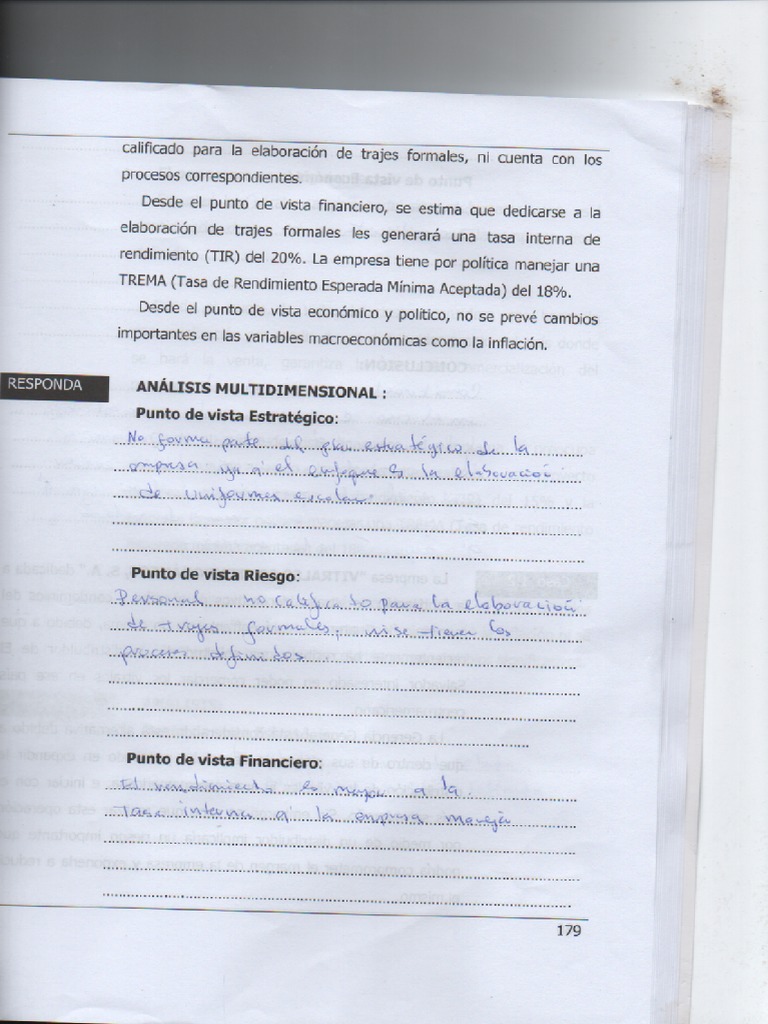 calificado para la elaboración de trajes formales, ni cuenta con los
procesos correspondientes.
Desde el punto de vista financiero, se estima que dedicarse a la
elaboración de trajes formales les generará una tasa interna de
rendimiento (TIR) del 20%. La empresa tiene por política manejar una
TREMA (Tasa de Rendimiento Esperada Mínima Aceptada) del 18%.
Desde el punto de vista económico y político, no se prevé cambios
importantes en las variables macroeconómicas como la inflación.
RESPONDA
ANÁLISIS MULTIDIMENSIONAL :
Punto de vista Estratégico:
No forma parte del plan estratégico de la
empresa ya q el enfoque es la elaboración
de uniformes escolar
Punto de vista Riesgo:
Personal no calificado para la elaboración
de trajes formales, ni se tienen los
procesos definidos
Punto de vista Financiero:
El rendimiento es mayor a la
Tasa interna a la empresa maneja
179